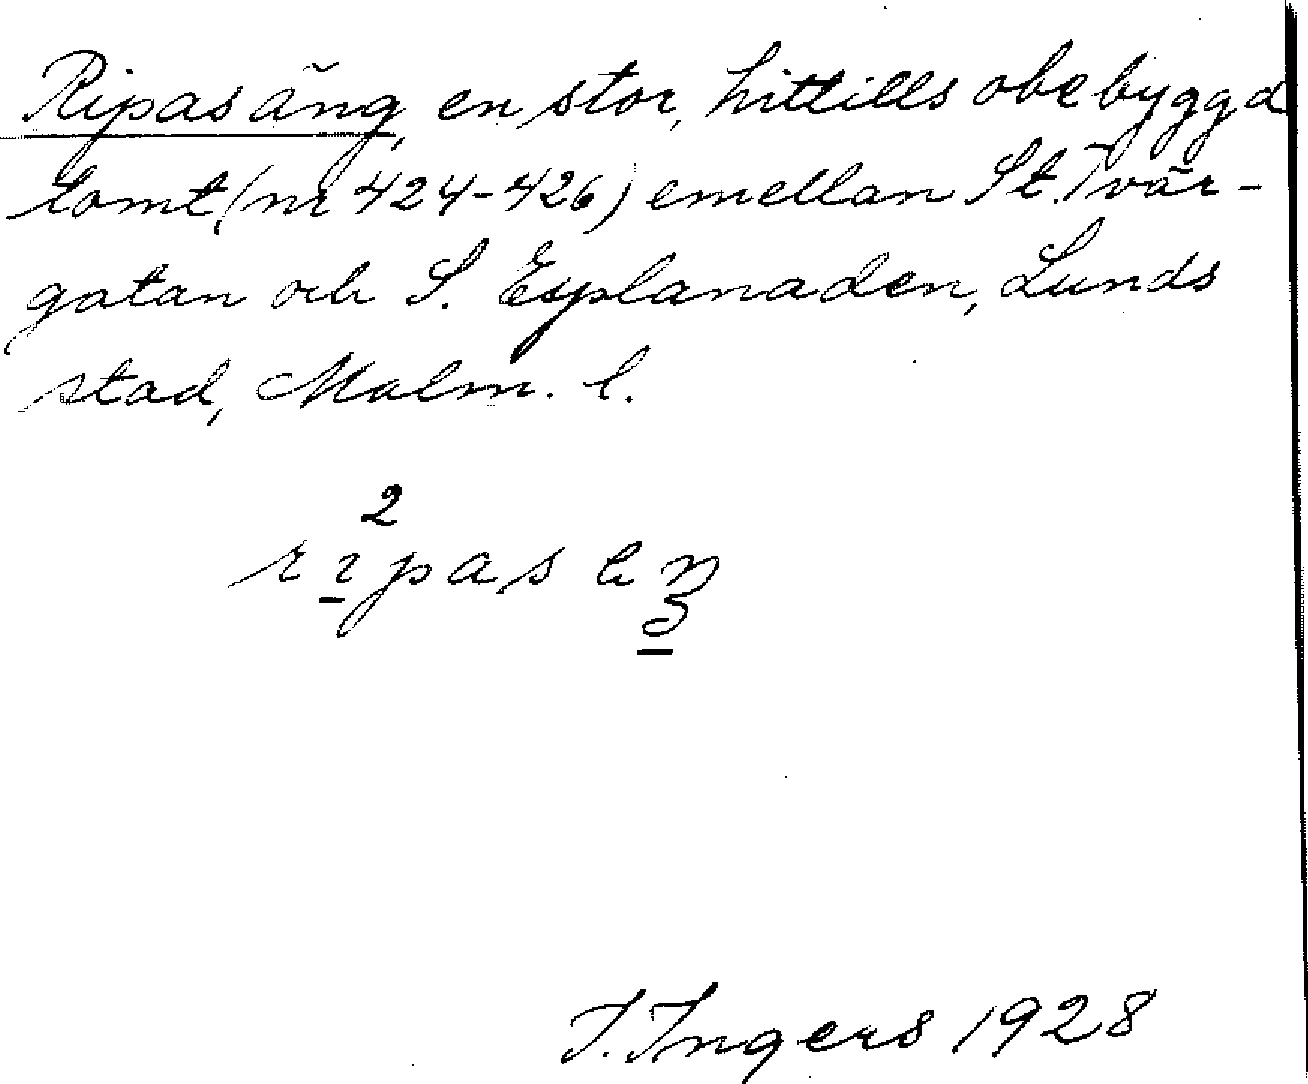 Ripas äng, en stor, hittills obebyggd
tomt, (nr 424-426) emellan St. Tvär-
gatan och S. Esplanaden, Lunds
stad, Malm. l.
2
ripas eŋ
I. Ingers 1928